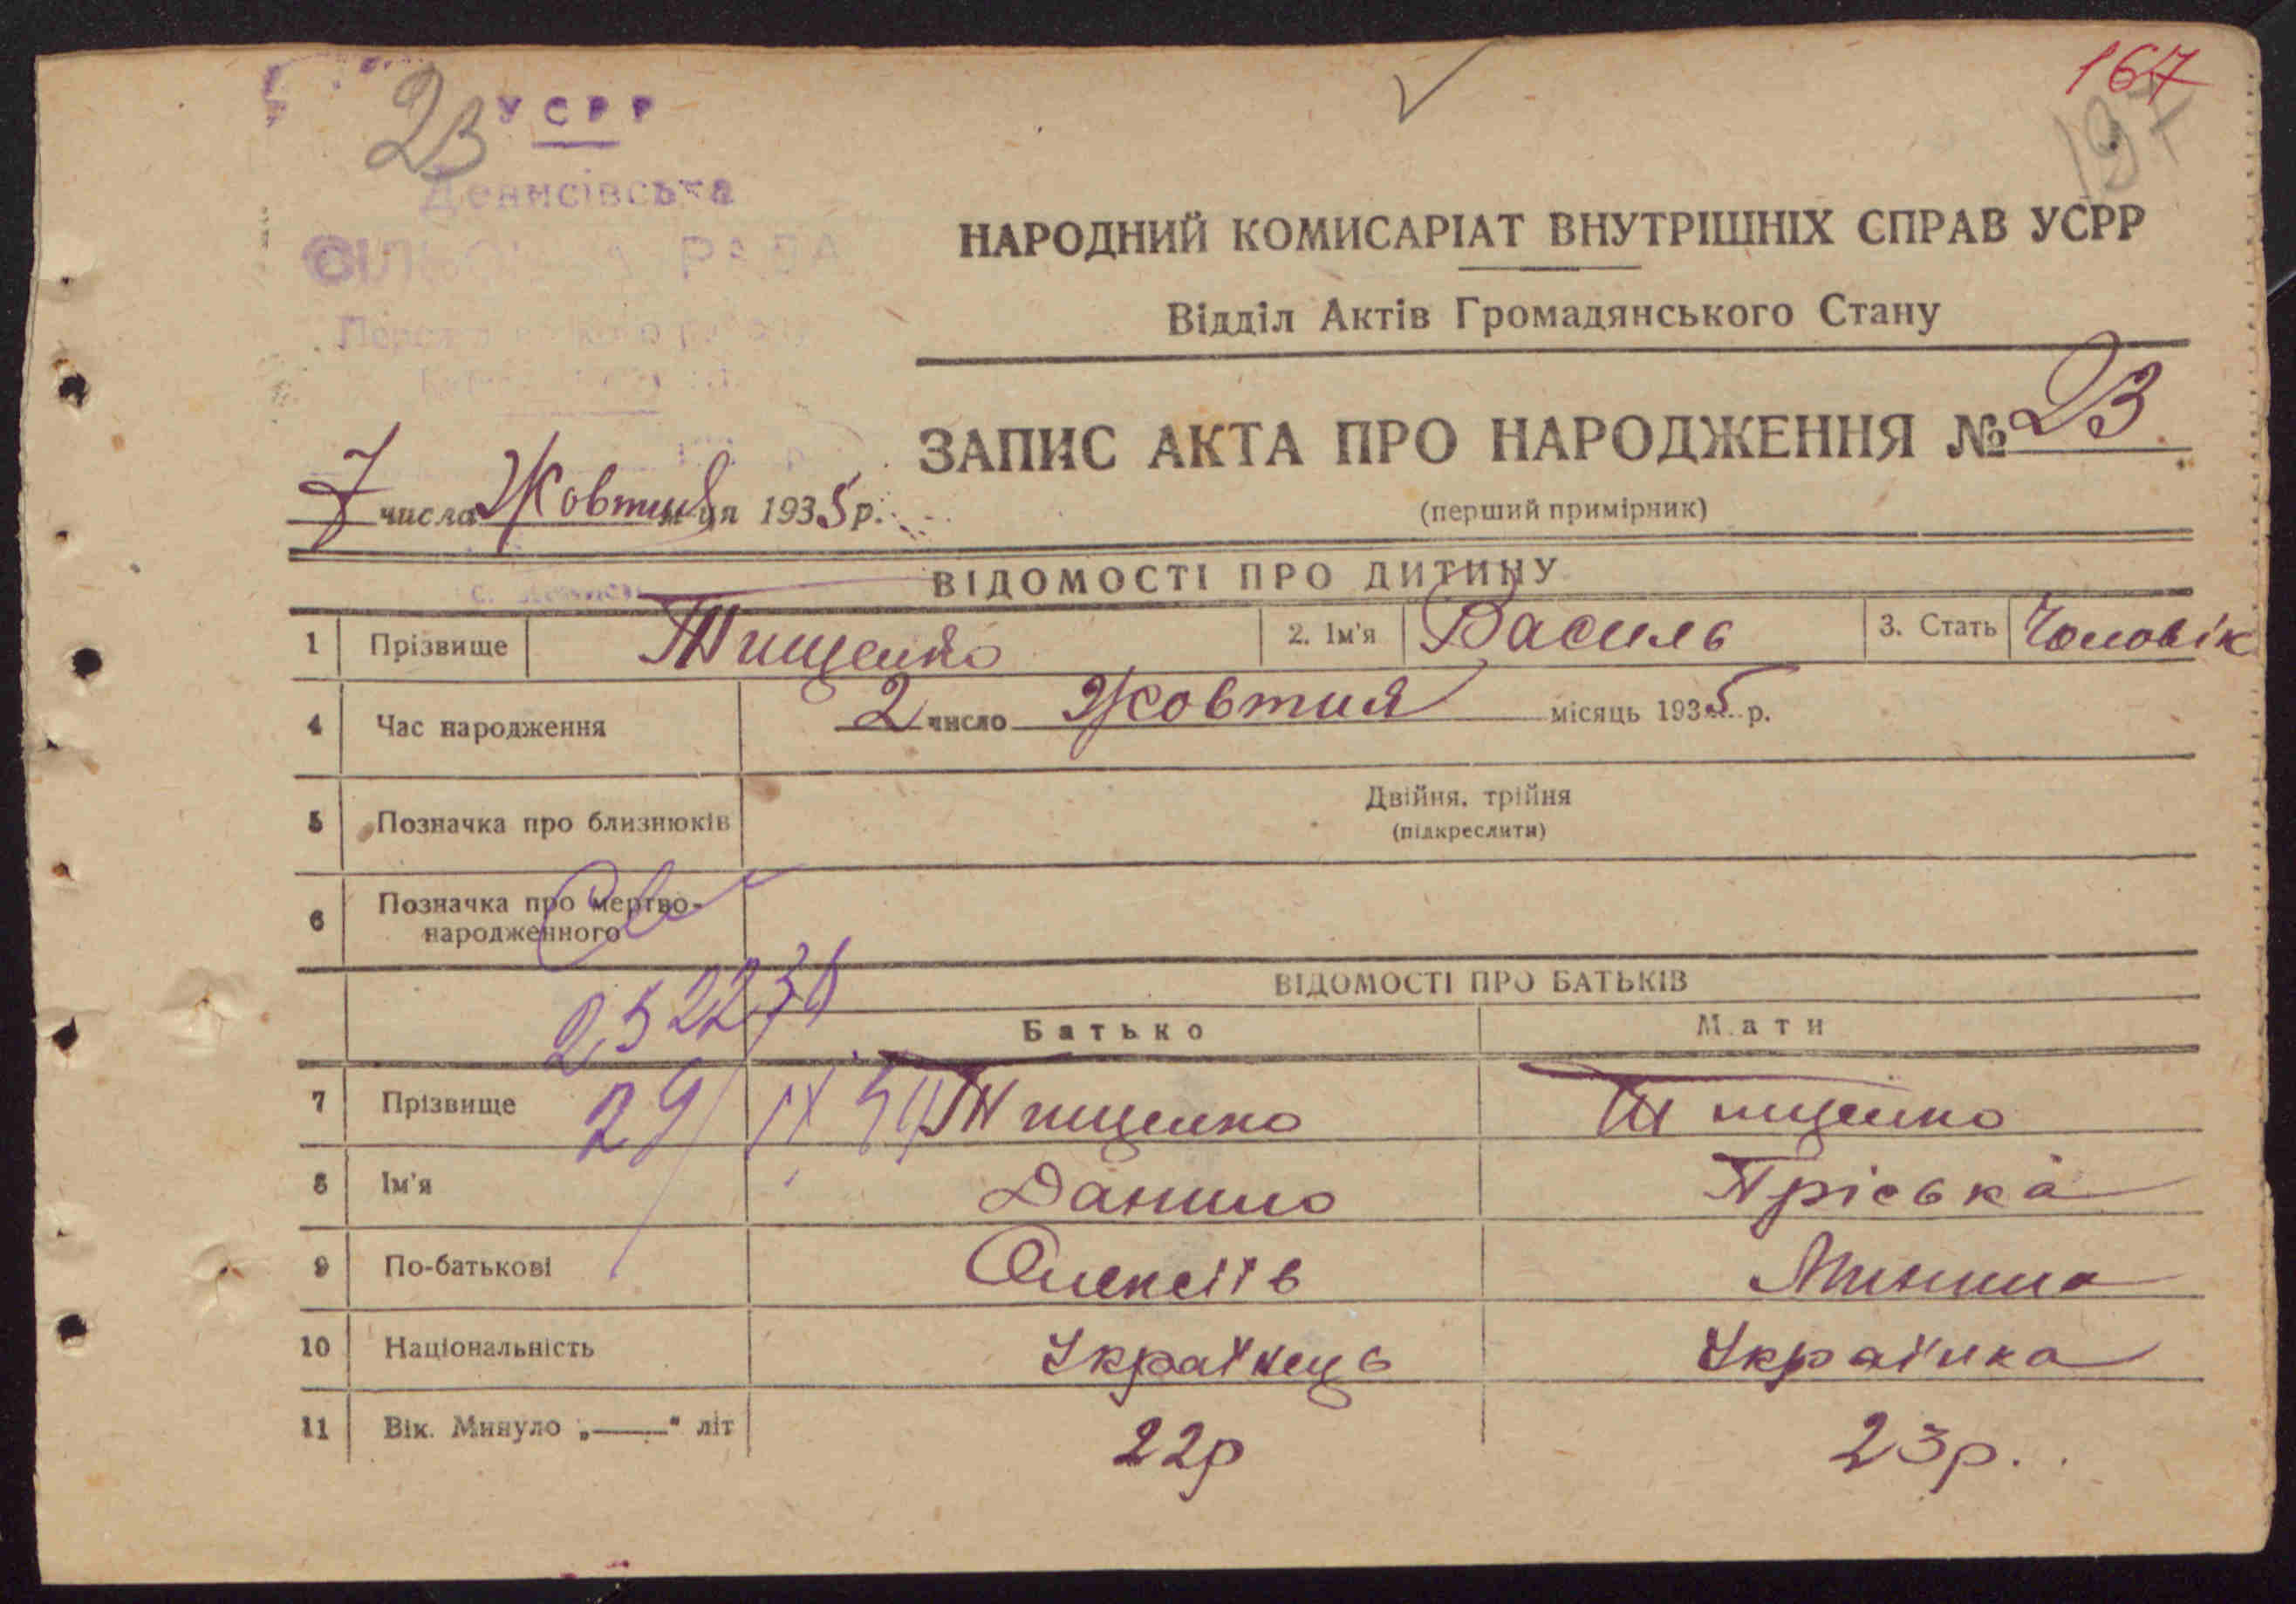 167
197
23
УСРР
Денисівська
СІЛЬСЬКА РАДА
НАРОДНИЙ КОМИСАРІАТ ВНУТРІШНІХ СПРАВ УСРР
Відділ Актів Громадянського Стану
ЗАПИС АКТА ПРО НАРОДЖЕННЯ № 23
(перший примірник)
7 числа Жовтня м-ця 1935 р.
ВІДОМОСТІ ПРО ДИТИНУ
1 Прізвище Тищенко 2. Ім'я Василь 3. Стать Чоловік
4 Час народження 2 число Жовтня місяць 1935 р.
5 Позначка про близнюків Двійня, трійня
(підкреслити)
6 Позначка про мертво-
народженного
ВІДОМОСТІ ПРО БАТЬКІВ
Батько Мати
7 Прізвище Тищенко Тищенко
8 Ім'я Данило Пріська
9 По-батькові Олексіїв
10 Національність Українець Українка
11 Вік. Минуло „——" літ 22р 23р.